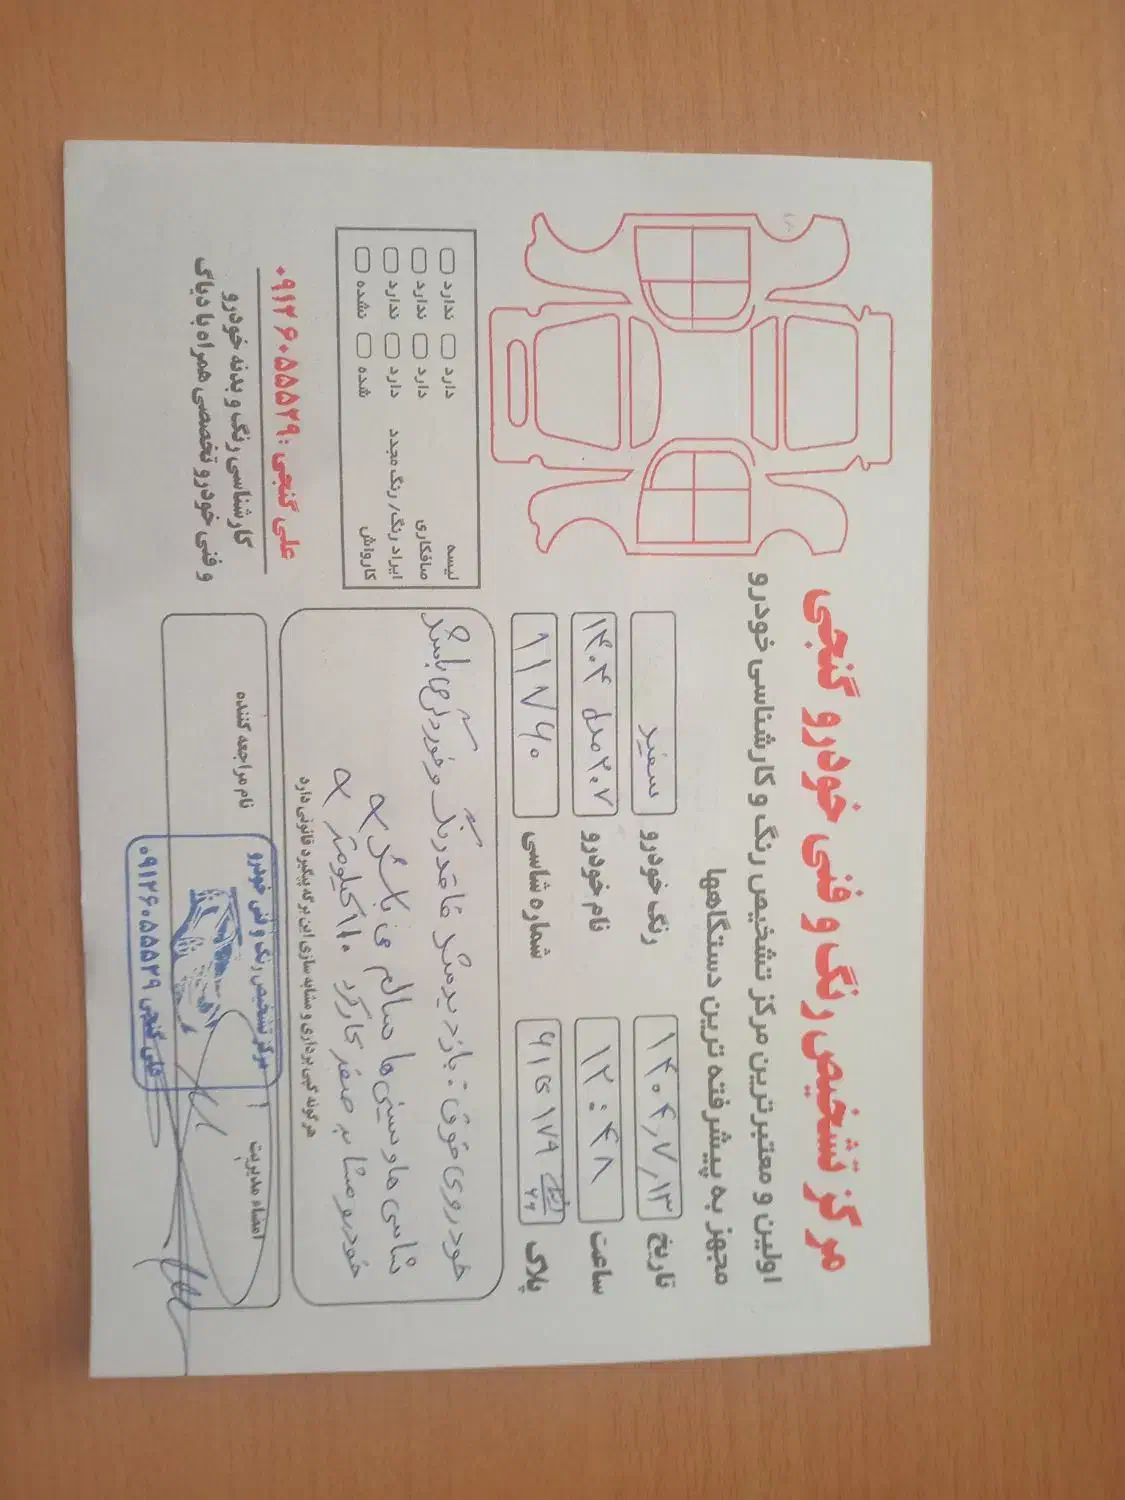 مرکز تشخیص رنگ و فنی خودرو گنجی
اولین و معتبرترین مرکز تشخیص رنگ و کارشناسی خودرو
مجهز به پیشرفته ترین دستگاهها
تاریخ ۱۴۰۴٫۷٫۱۳
رنگ خودرو سفید
ساعت ۱۲:۴۸
نام خودرو ۲۰۷ مدل ۱۴۰۴
پلاک ۶۱ی۱۷۹
شماره شاسی ۱۱۷۶۰
خودروی فوق: بازدید شد فاقد رنگ و خوردگی باشد
شاسی ها و سینی ها سالم می باشد
خودرو صفر کارکرد ۱۱۰ کیلومتر
هر گونه کپی برداری و مشابه سازی این برگه پیگیرد قانونی دارد
لیسه دارد ندارد
صافکاری دارد ندارد
ایراد رنگ/ رنگ مجدد دارد ندارد
کارواش شده نشده
علی گنجی: ۰۹۱۲۶۰۵۵۵۲۹
کارشناسی رنگ و بدنه خودرو
و فنی خودرو تخصصی همراه با دیاگ
امضاء مدیریت
نام مراجعه کننده
مرکز تشخیص رنگ و فنی خودرو
علی گنجی ۰۹۱۲۶۰۵۵۵۲۹